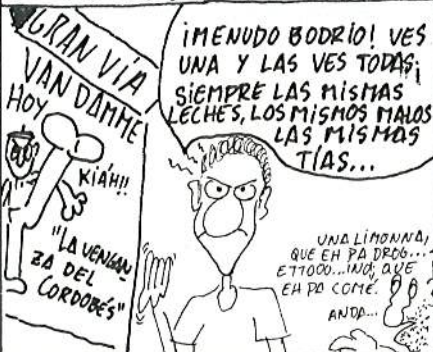 GRAN VÍA
VAN DAMME
HOY
KIÁH!!
"LA VENGAN-
ZA DEL
CORDOBÉS"
¡MENUDO BODRIO! VES
UNA Y LAS VES TODAS;
SIEMPRE LAS MISMAS
LECHES, LOS MISMOS MALOS
LAS MISMAS
TÍAS...
UNA LIMONNA,
QUE EH PA DROG...
¡NO; QUE
EH PA COMÉ.
ANDA...